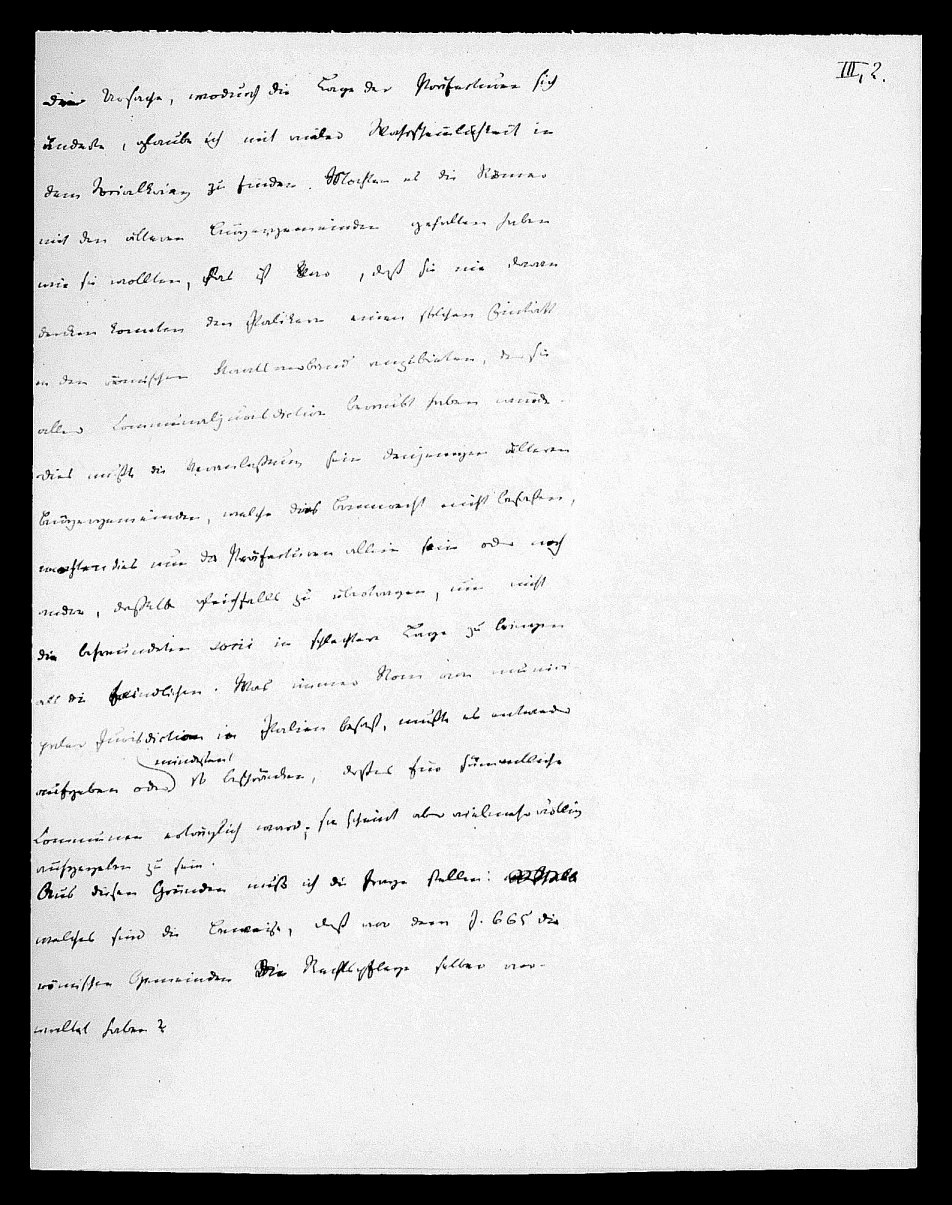 III, 2.
Die Ursache, wodurch die Lage der Präfecturen sich
änderte, glaube ich mit vieler Wahrscheinlichkeit in
dem Socialkrieg zu finden. Mochten es die Römer
mit den älteren Bürgergemeinden gehalten haben
wie sie wollten, das ist klar, daß sie nie daran
denken konnten den Italikern einen solchen Eintritt
in den römischen Staatsverband anzubieten, der sie
aller Communaljurisdiction beraubt haben würde.
Dies mußte die Veranlassung sein denjenigen älteren
Bürgergemeinden, welche dies Vorrecht nicht besaßen,
mochten dies nun die Präfecturen allein sein oder noch
andere, dasselbe gleichfalls zu übertragen, um nicht
die befreundeten socii in schlechtere Lage zu bringen
als die feindlichen. Was immer Rom von munici-
paler Jurisdiction in Italien besaß, mußte es entweder
aufgeben oder mindestens so beschränken, daß es für sämmtliche
Communen erträglich ward; sie scheint aber vielmehr völlig
aufgegeben zu sein.
Aus diesen Gründen muß ich die Frage stellen:
welches sind die Beweise, daß vor dem J. 665 die
römischen Gemeinden die Rechtspflege selber ver-
waltet haben?